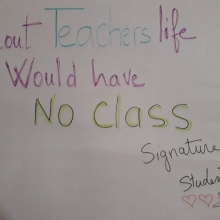 out Teachers life
Would have
No Class
Signature
Studen